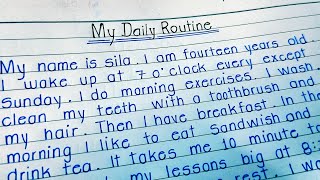 My Daily Routine
My name is sila. I am fourteen years old.
I wake up at 7 o'clock every except
sunday. I do morning exercises. I wash,
clean my teeth with a toothbrush and
my hair. Then I have breakfast. In the
morning I like to eat Sandwish and
drink tea. It takes me 10 minute to
my lessons big at 8:
rest. I